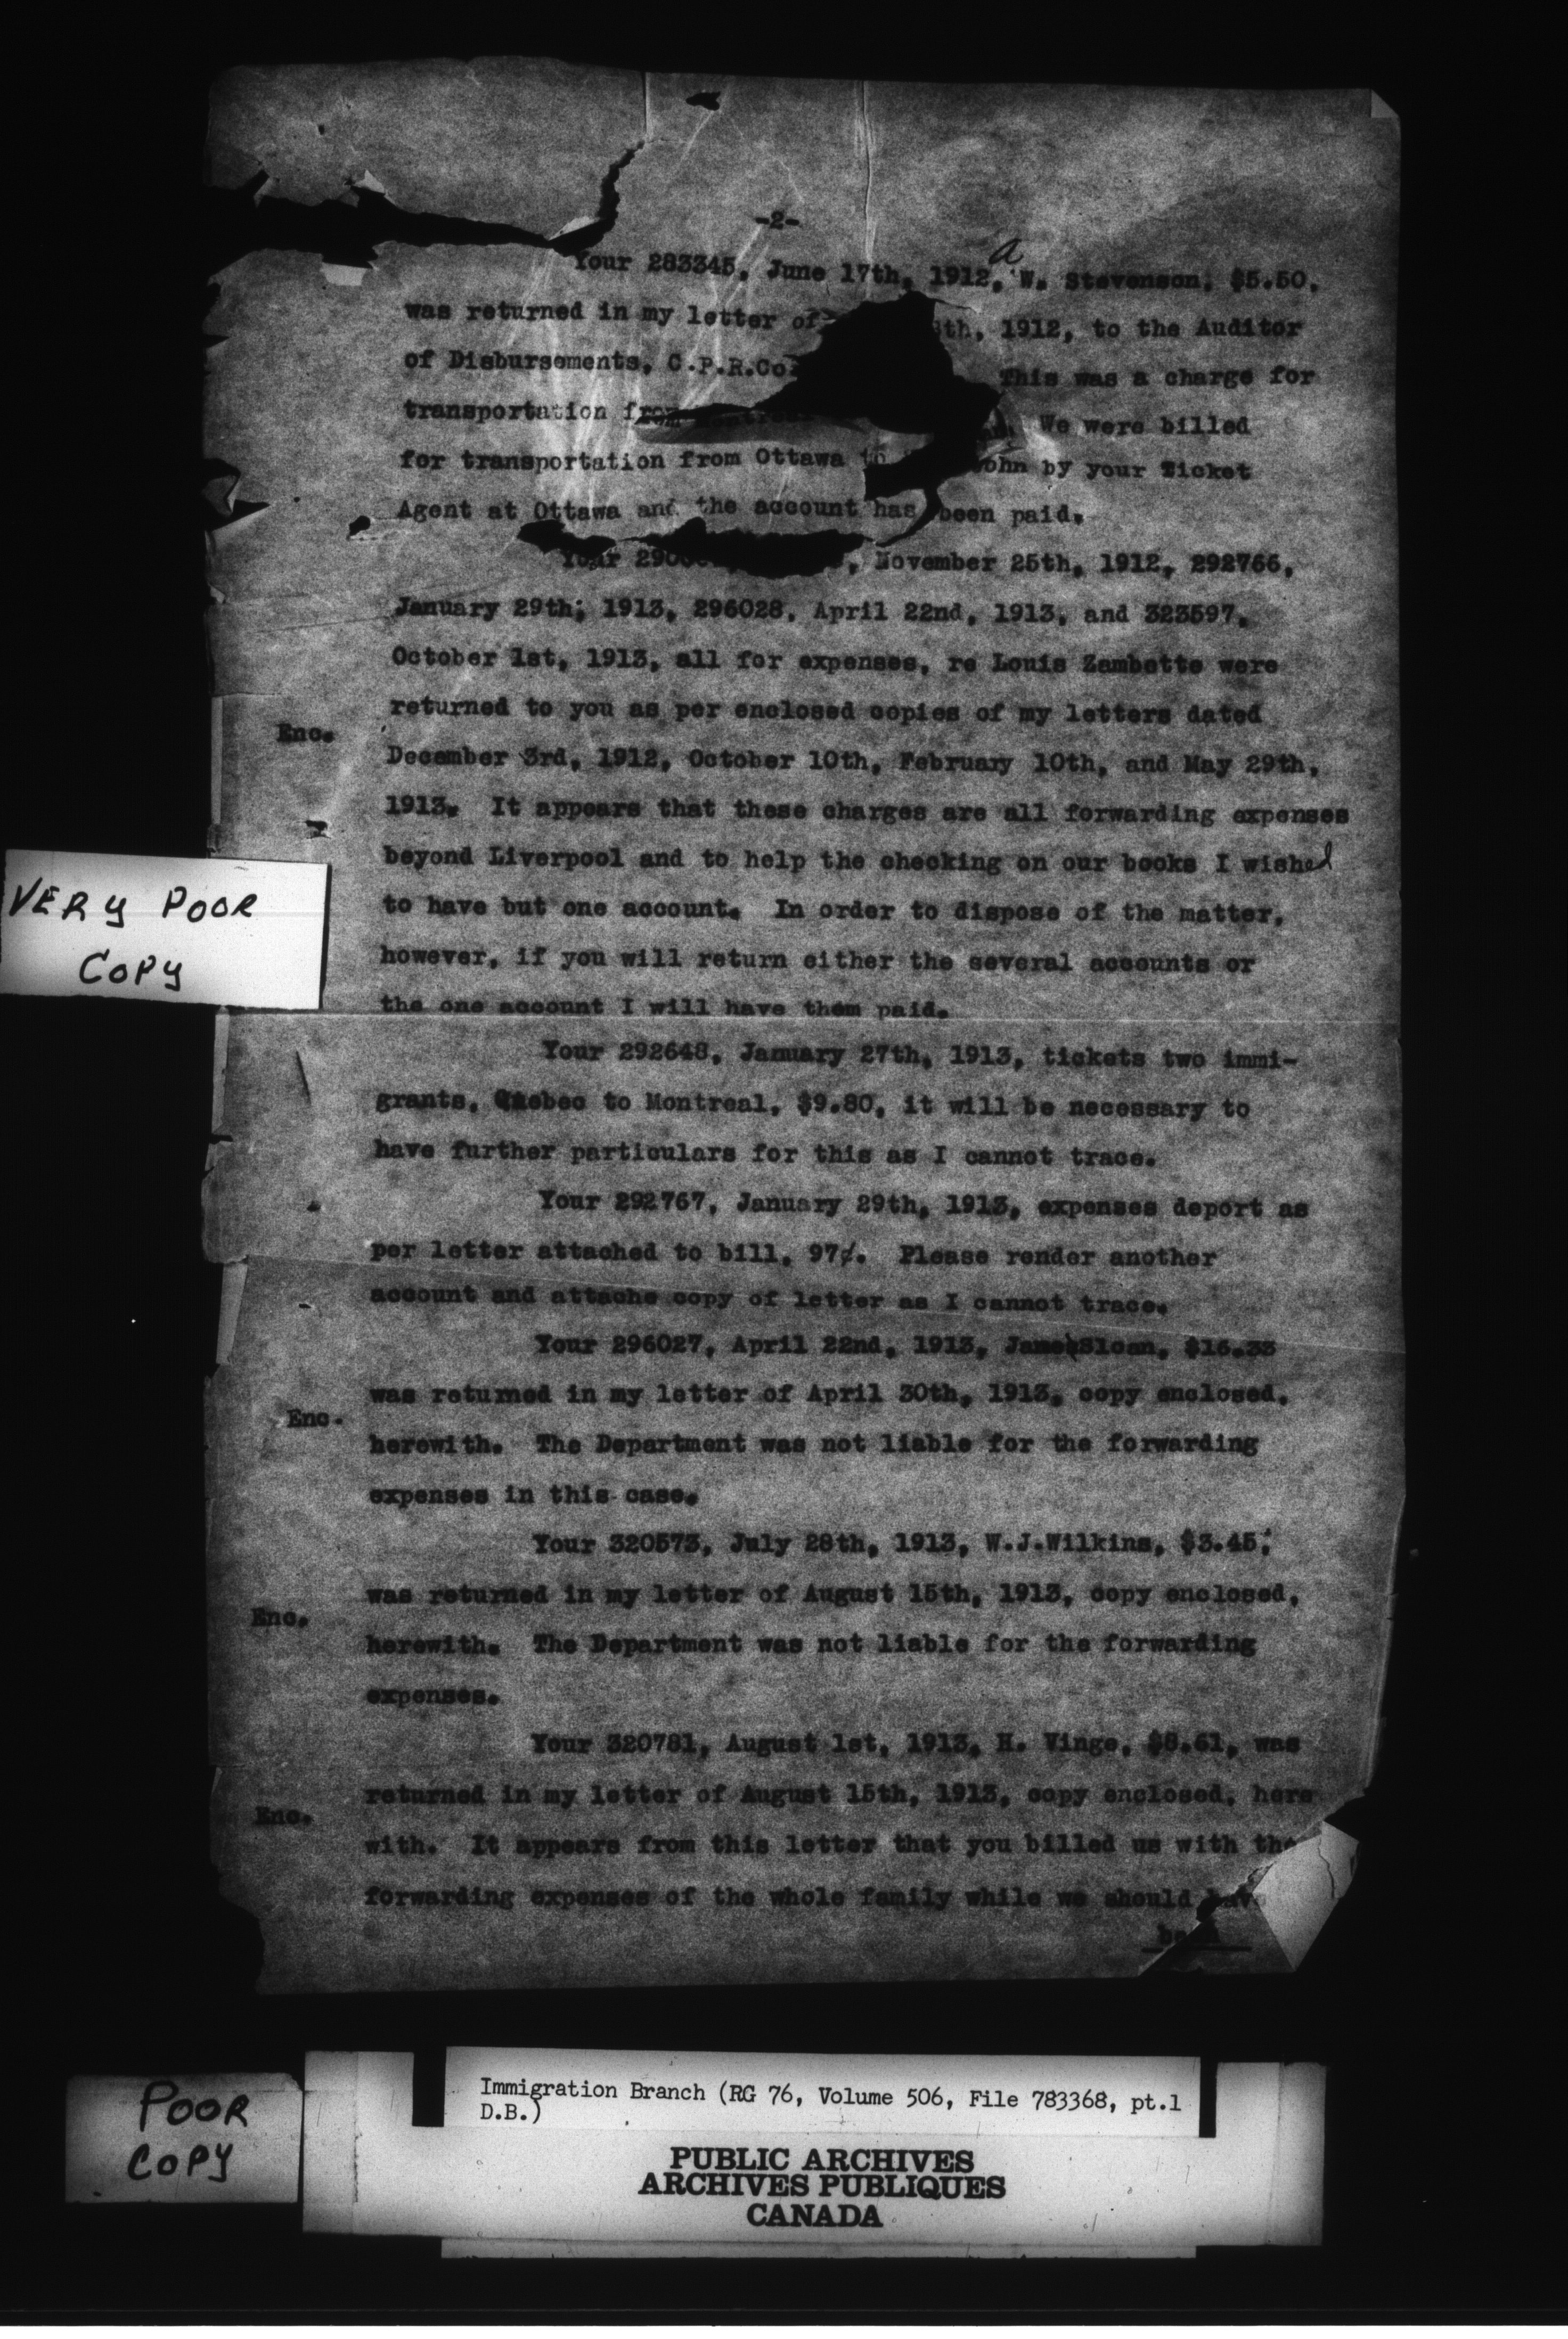 -2-
a
Your 283345, June 17th, 1912, W. Stevenson, $5.50,
was returned in my letter of 1912, to the Auditor
of Disbursements, C.P.R.Co This was a charge for
transportation from We were billed
for transportation from Ottawa to by your Ticket
Agent at Ottawa and the account has been paid.
Your November 25th, 1912, 292766,
January 29th, 1913, 296028, April 22nd, 1913, and 323597,
October 1st, 1913, all for expenses, re Louis Zambette were
returned to you as per enclosed copies of my letters dated
Enc.
December 3rd, 1912, October 10th, February 10th, and May 29th,
1913. It appears that these charges are all forwarding expenses
beyond Liverpool and to help the checking on our books I wished
to have but one account. In order to dispose of the matter,
however, if you will return either the several accounts or
the one account I will have them paid.
VERY POOR
COPY
Your 292648, January 27th, 1913, tickets two immi-
grants, Quebec to Montreal, $9.80, it will be necessary to
have further particulars for this as I cannot trace.
Your 292767, January 29th, 1913, expenses deport as
per letter attached to bill, 97¢. Please render another
account and attachs copy of letter as I cannot trace.
Your 296027, April 22nd, 1913, James Sloan, $16.33
was returned in my letter of April 30th, 1913, copy enclosed,
Enc.
herewith. The Department was not liable for the forwarding
expenses in this case.
Your 320573, July 28th, 1913, W.J.Wilkins, $3.45,
was returned in my letter of August 15th, 1913, copy enclosed,
Enc.
herewith. The Department was not liable for the forwarding
expenses.
Your 320781, August 1st, 1913, H. Vinge, $8.61, was
returned in my letter of August 15th, 1913, copy enclosed, here
Enc.
with. It appears from this letter that you billed us with the
forwarding expenses of the whole family while we should have
been
POOR
COPY
Immigration Branch (RG 76, Volume 506, File 783368, pt.1
D.B.)
PUBLIC ARCHIVES
ARCHIVES PUBLIQUES
CANADA